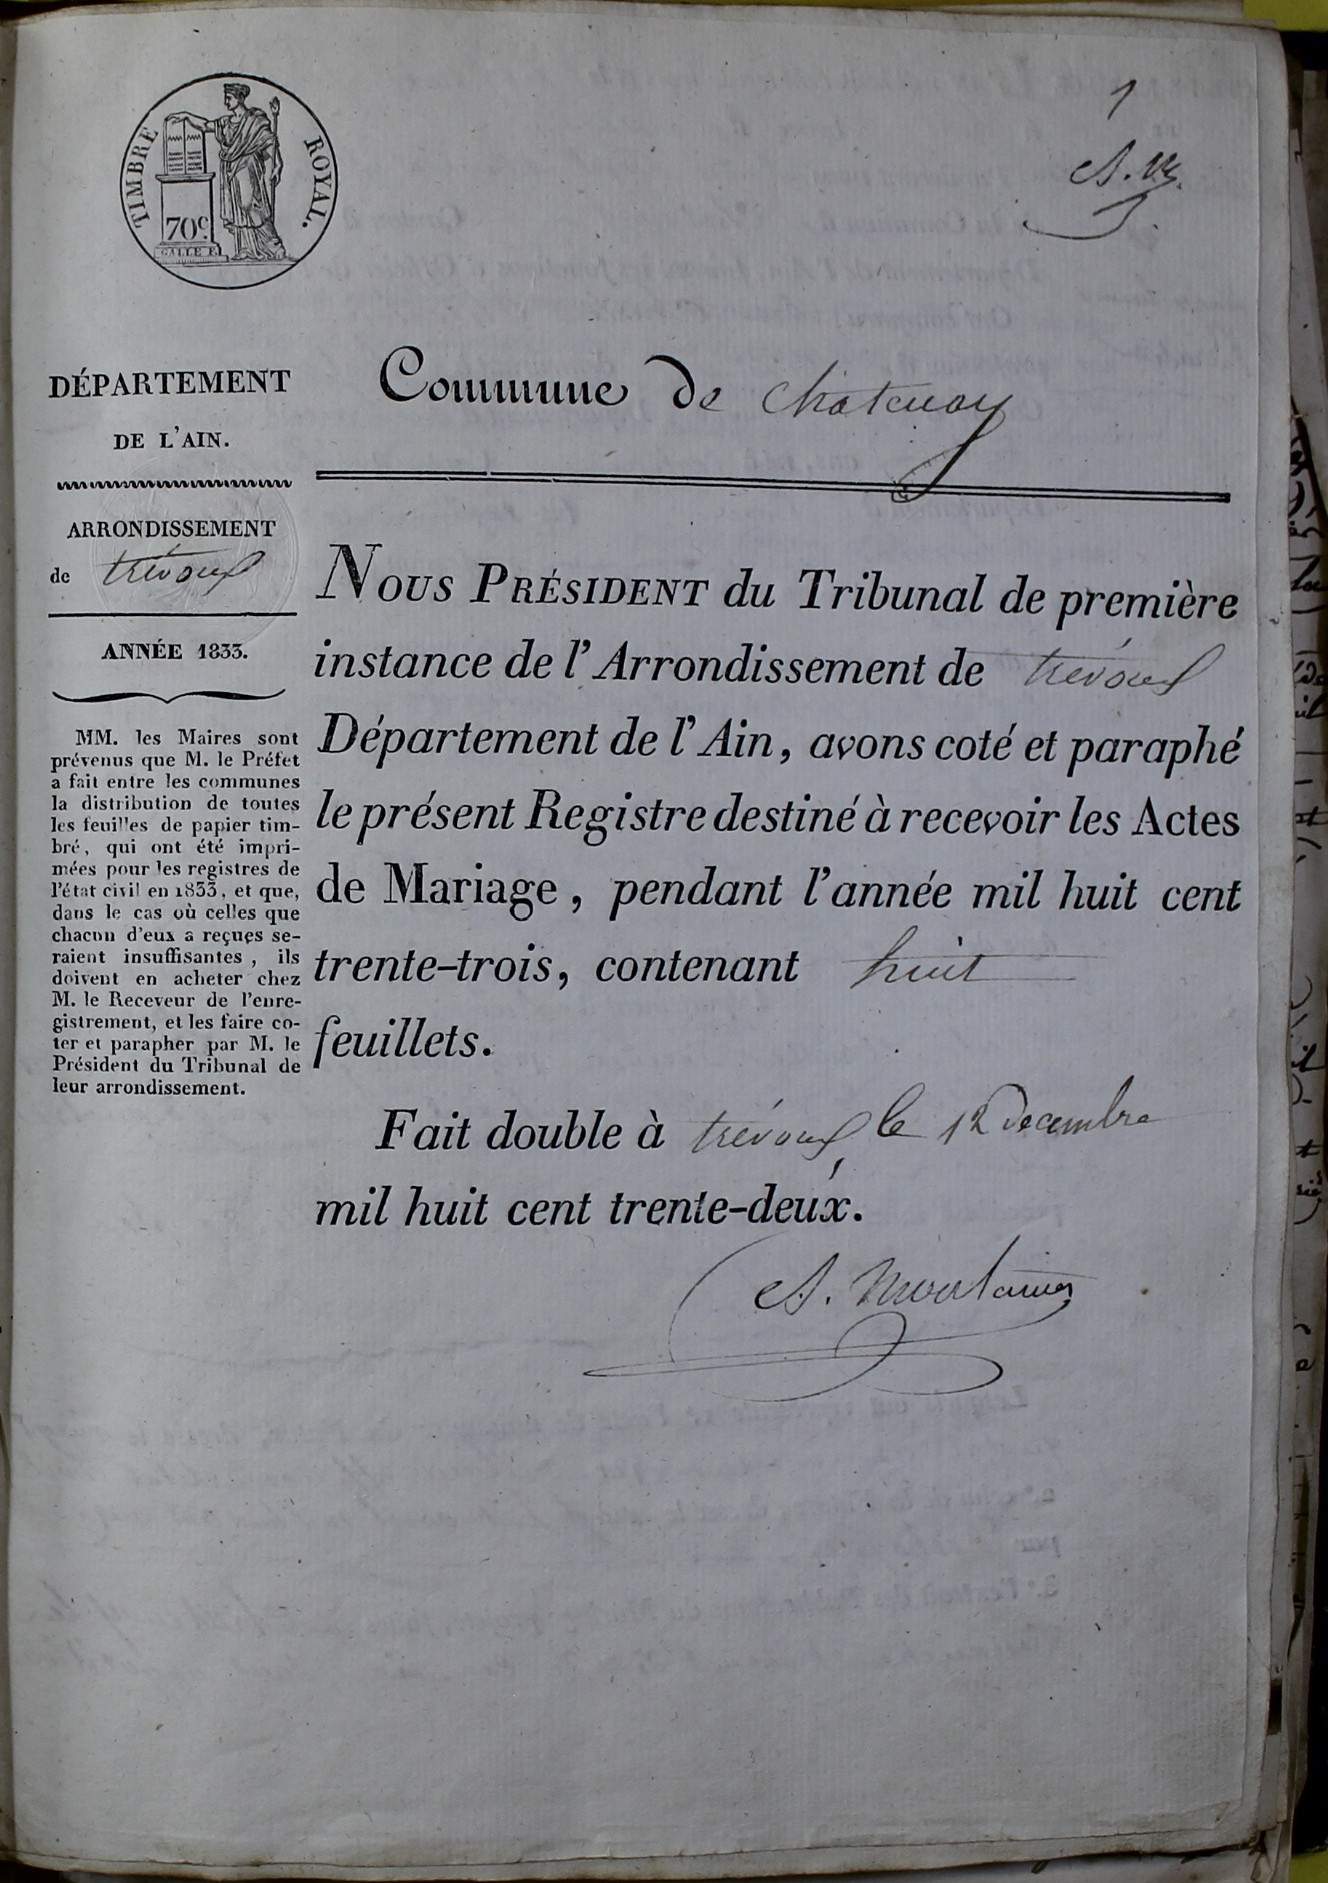 TIMBRE ROYAL.
70c
GALLE F.
1
A. M.
DÉPARTEMENT
DE L'AIN.
ARRONDISSEMENT
de trévoux
ANNÉE 1833.
MM. les Maires sont
prévenus que M. le Préfet
a fait entre les communes
la distribution de toutes
les feuilles de papier tim-
bré, qui ont été impri-
mées pour les registres de
l'état civil en 1833, et que,
dans le cas où celles que
chacun d'eux a reçues se-
raient insuffisantes, ils
doivent en acheter chez
M. le Receveur de l'enre-
gistrement, et les faire co-
ter et parapher par M. le
Président du Tribunal de
leur arrondissement.
Commune de Chatenay
NOUS PRÉSIDENT du Tribunal de première
instance de l'Arrondissement de trévoux
Département de l'Ain, avons coté et paraphé
le présent Registre destiné à recevoir les Actes
de Mariage, pendant l'année mil huit cent
trente-trois, contenant huit
feuillets.
Fait double à trévoux, le 12 Decembre
mil huit cent trente-deux.
A.